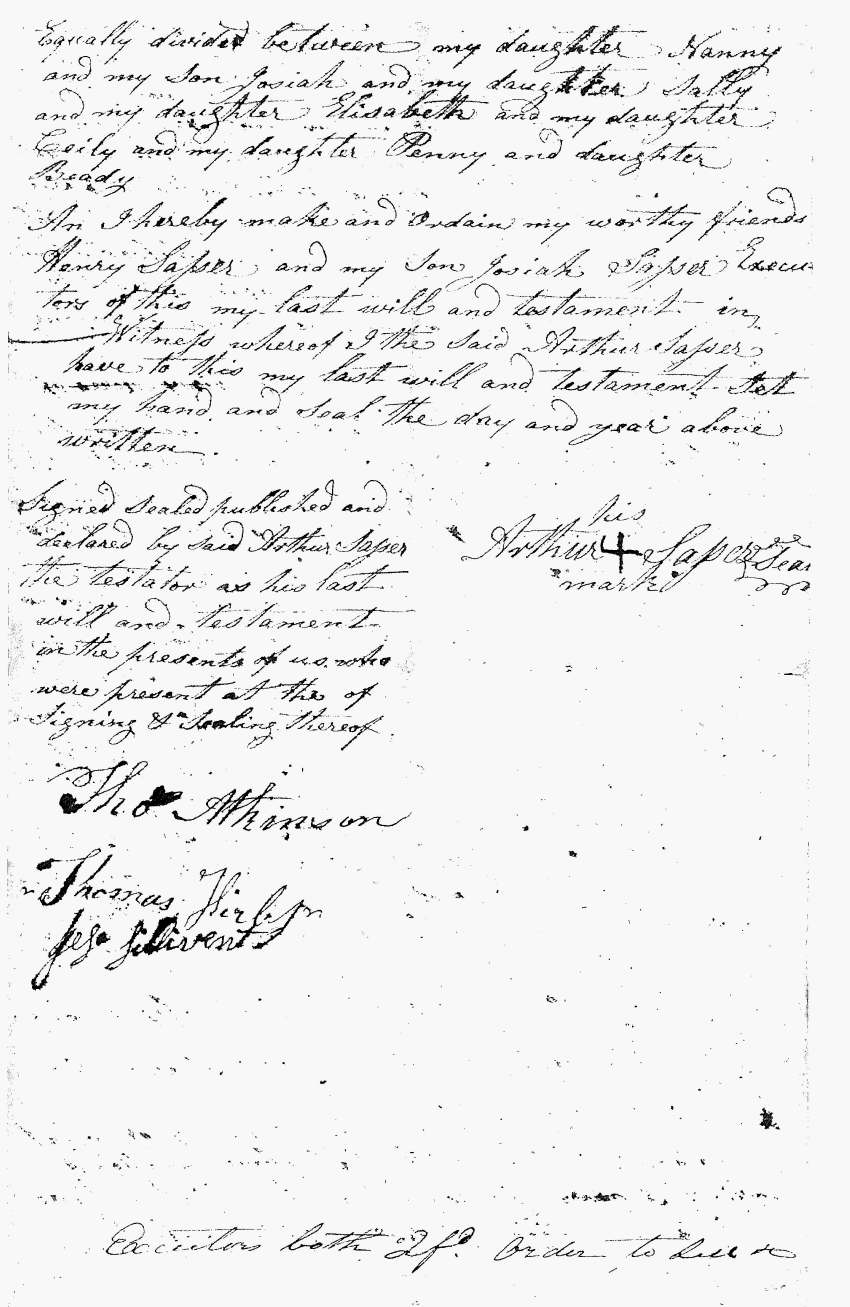 Equally divided between my daughter Nanny
and my Son Josiah and my daughter Sally
and my daughter Elisabeth and my daughter
Ceily and my daughter Penny and daughter
Beady
An I hereby make and Ordain my worthy friends
Henry Sasser and my Son Josiah Sasser Execu
tors of this my last will and testament in
Witness whereof I the Said Arthur Sasser
have to this my last will and testament Set
my hand and Seal the day and year above
written.
Signed Sealed published and
declared by said Arthur Sasser
the testator as his last
will and testament
in the presents of us who
were present at the of
Signing & Sealing thereof
his
Arthur + Sasser Seal
mark
Thos Atkinson
Thomas Kirby
Executors both Qfd. Order to